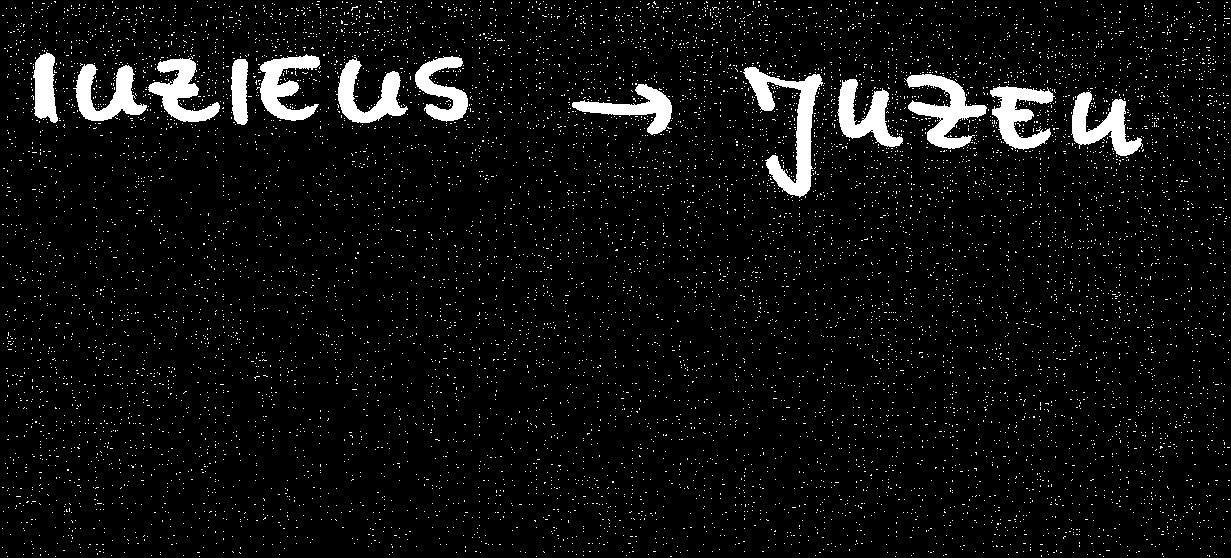 IUZIEUS → JUZEU